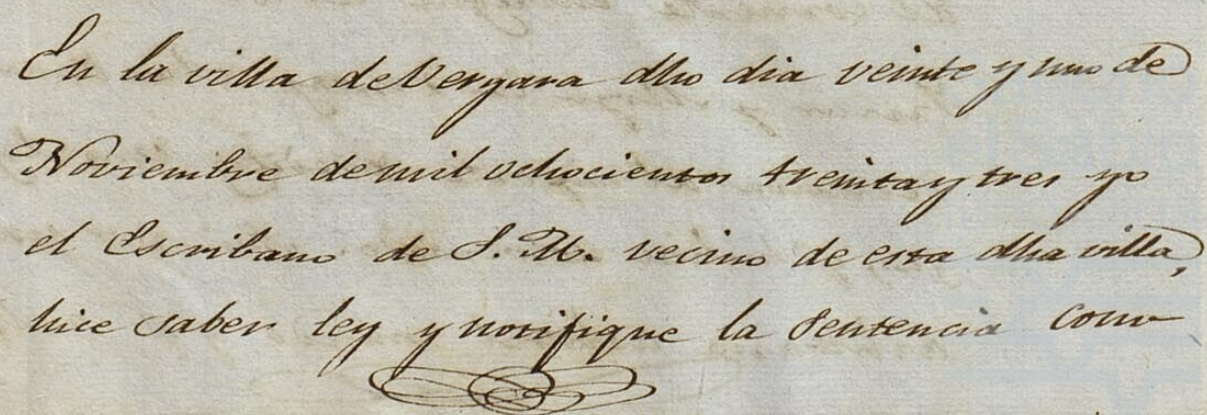 En la villa de Vergara dho dia veinte y uno de
Noviembre de mil ochocientos treinta y tres yo
el Escribano de S. M. vecino de esta dha villa,
hice saber ley y notifique la Sentencia como